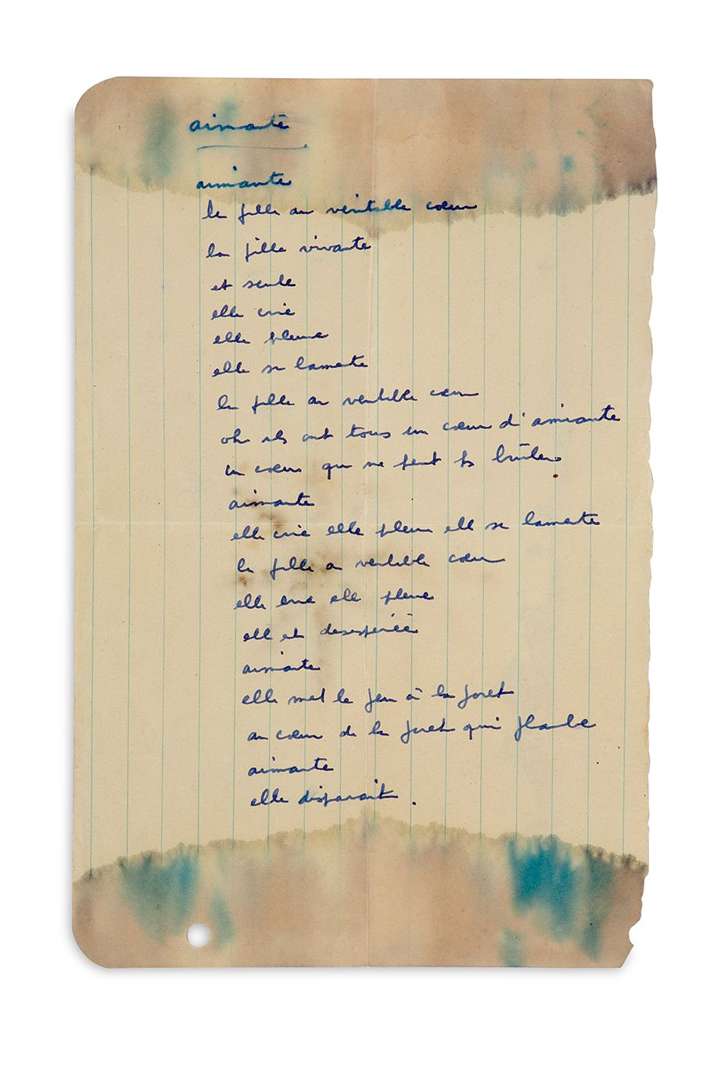 amiante
amiante
la fille au veritable cœur
la fille vivante
et seule
elle crie
elle pleure
elle se lamente
la fille au veritable cœur
oh ils ont tous un cœur d'amiante
un cœur qui ne peut ps brûler
amiante
elle crie elle pleure elle se lamente
la fille au veritable cœur
elle crie elle pleure
elle est desespérée
amiante
elle met le feu à la foret
au cœur de la foret qui flambe
amiante
elle disparait.